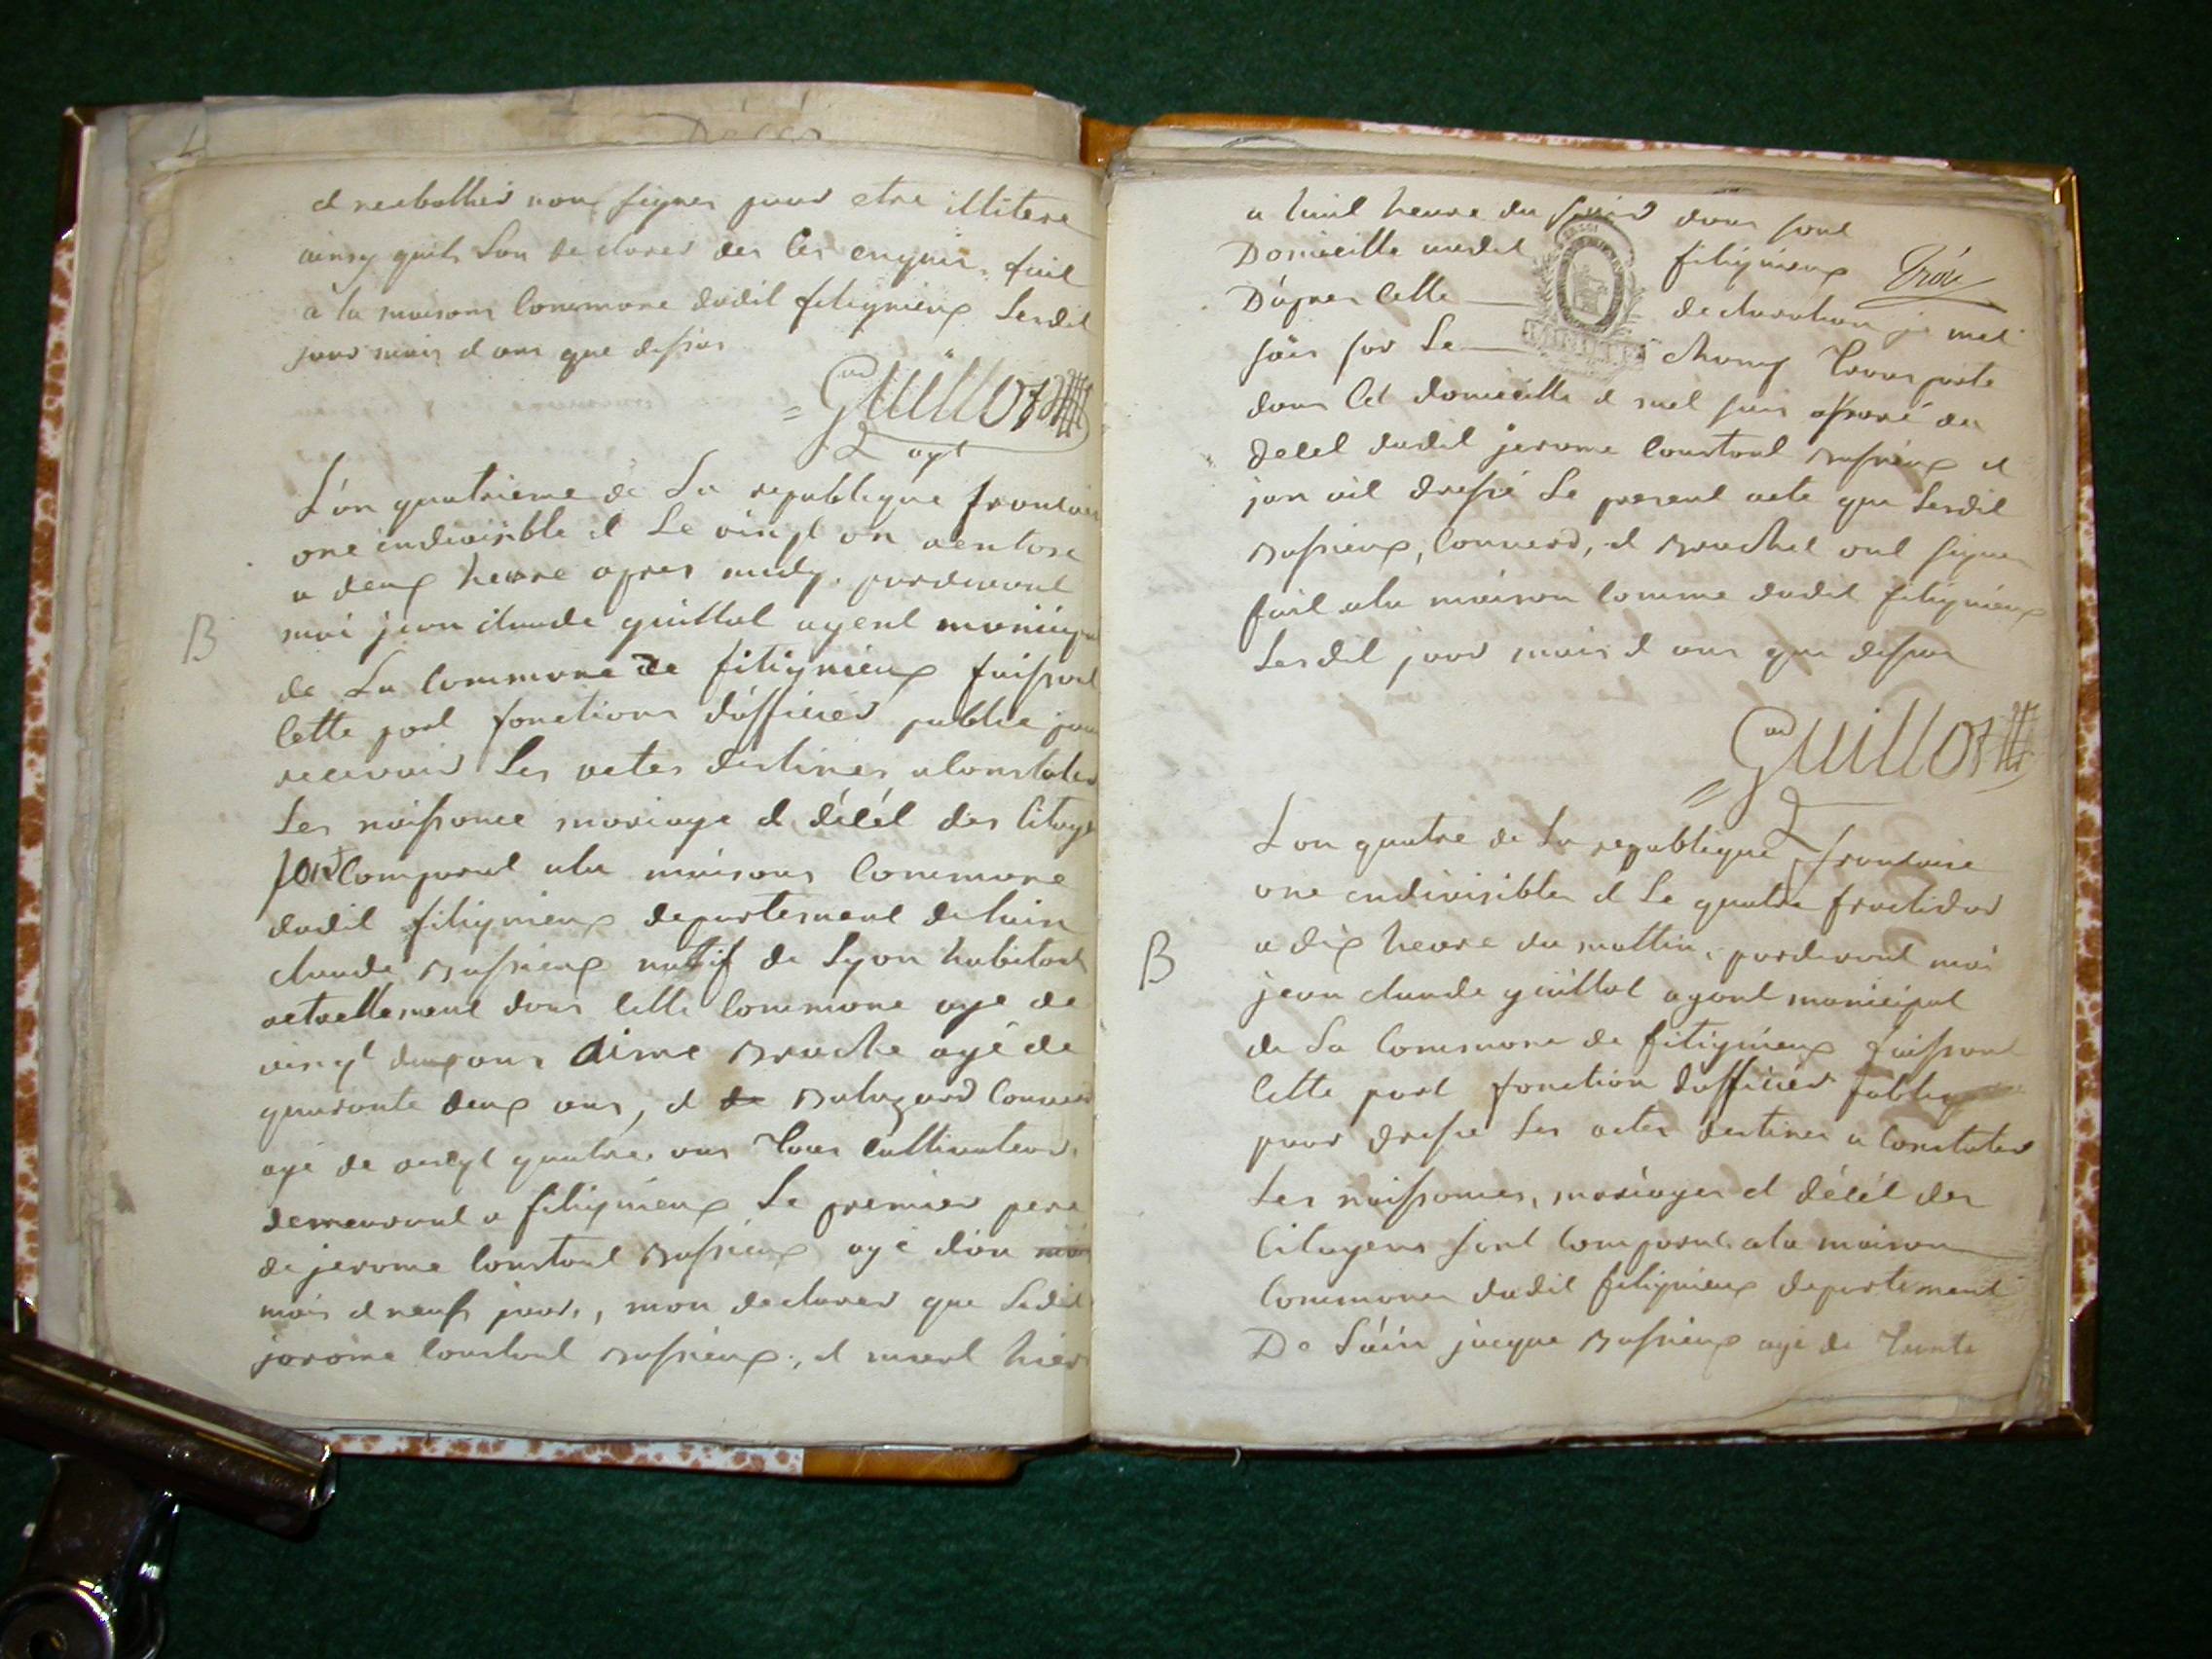 Décès
et neubothier non signer pour etre illitere
ainsy quils lon declarer des les enquir. fait
a la maisons Commune dudit fitignieux Lesdit
jour mois et ans que dessus
Guillot
agt
L'an quatrieme de La republique francais
une indivisible et Le vingt un ventose
a deux heure apres midy. pardevant
B
moi jean claude guillot agent municipa
de La Commune de fitignieux faissant
Cette part fonctions d'officier public pour
recevoir Les actes destines a Constater
Les naissance mariage et décét des Citoye
sont Comparut a la maisons Commune
dudit fitignieux departement de lain
claude Bassieux natif de Lyon habitant
actuellement dans Cette Commune agé de
vingt deux ans Aime Bruche agé de
quaronte deux ans, et de Balazard Convers
agé de vingt quatre ans Tous Cultivateur.
demeurant a fitignieux Le premier pere
de jerome Constant Bassieux agé d'un mois
mois et neufs jours, mon declarer que Ledit
jerome Constant Bassieux, et mort hier
a huit heure du soir dans sont
Domicille audit fitignieux
D'apres Cette declaration je met
suis sur Le champ Transporte
dans Cet domicille et met suis assuré du
decet dudit jerome Constant Bassieux et
jan ait dressé Le present acte que Lesdit
Bassieux, Convers, et Bruchet ont signer
fait ala maison Comme dudit fitignieux
Lesdit jour mois et ans que dessus
Guillot
L'an quatre de La republique francaise
une indivisibles et Le quatre fructidor
B
a dix heure du mattin, pardevant moi
jean claude guillot agant municipal
de La Commune de fitignieux faissant
Cette part fonction dofficier publiq
pour dresse Les actes destines a Constater
Les naissances, mariages et décét des
Citoyens sont Comparut ala maison
Communes dudit fitignieux departement
De Lain jacque Bassieux agé de Trente